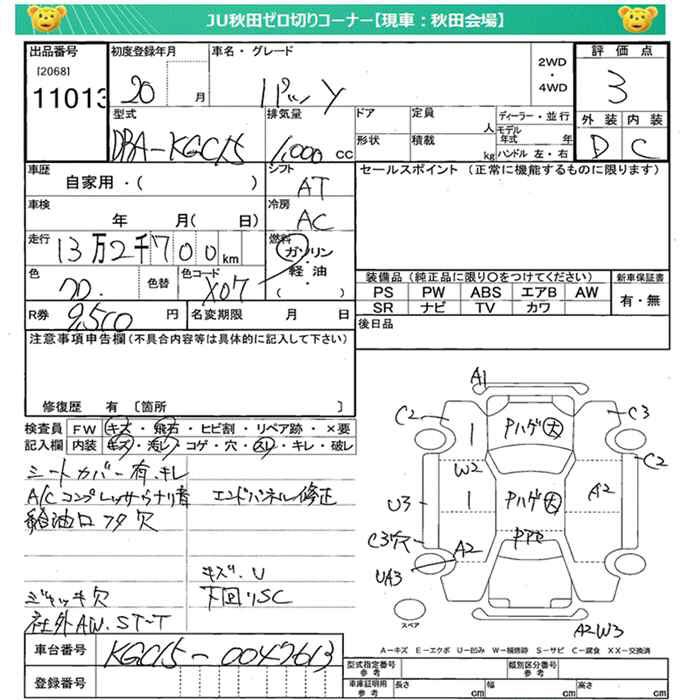 JU秋田ゼロ切りコーナー【現車：秋田会場】
出品番号 初度登録年月 車名・グレード 2WD・4WD 評価点
[2068]
11013 20 月 3
型式 排気量 ドア 定員 人 ディーラー・並行 外装 内装
DBA-KGC15 1,000 cc 形状 積載 kg モデル年式 年 ハンドル 左・右 D C
車歴 シフト セールスポイント (正常に機能するものに限ります)
自家用・( ) AT
車検 冷房
年 月( 日) AC
走行 燃料
13万2千700km ガソリン・軽油・( )
色 色替 色コード X07
装備品 (純正品に限り〇をつけてください) 新車保証書
PS PW ABS エアB AW 有・無
SR ナビ TV カワ
R券 9,500 円 名変期限 月 日
後日品
注意事項申告欄(不具合内容等は具体的に記入して下さい)
修復歴 有 〔箇所 〕
検査員 FW キズ・飛石・ヒビ割・リペア跡・×要
記入欄 内装 キズ・汚レ・コゲ・穴・スレ・キレ・破レ
シートカバー有.キレ
A/Cコンプレッサーウナリ音 エンドパネル修正
給油口フタ欠
キズ.U
ジャッキ欠 下回りSC
社外AW.ST-T
車台番号 KGC15-0047613
登録番号
A1
C2 | Pハゲ大 C3
W2 C2
U3 | Pハゲ大 A2
C3穴 A2
UA3
スペア
A2W3
A－キズ E－エクボ U－凹み W－補修跡 S－サビ C－腐食 XX－交換済
型式指定番号 参考 類別区分番号 参考
車庫証明用 参考 長さ cm 幅 cm 高さ cm